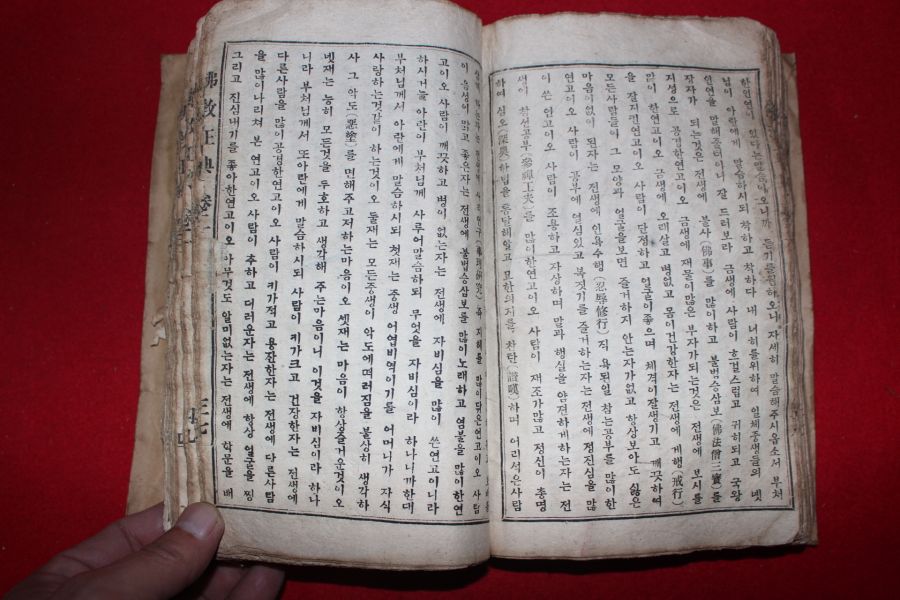 한인연이 있다는말을아오니까 듣기를원하오니 자세히 말슴해주시옵소서 부처
님이 아란에게 말슴하시되 착하고 착하다 네 너히를위하여 일체중생들의 옛
인연을 말해줄터이니 잘 드러보라 금생에 사람이 호걸스럽고 귀히되고 국왕
장자가 되는것은 전생에 불사(佛事)를 많이하고 불법승삼보(佛法僧三寶)를
지성으로 공경한연고이오 금생에 재물이많은 부자가되는것은 전생에 보시를
많이 한연고이오 금생에 오래살고 병없고 몸이건강한자는 전생에 계행(戒行)
을 잘지킨연고이오 사람이 단정하고 얼굴이좋으며 체격이잘생기고 깨끗하여
모든사람들이 그 모양과 얼굴을보면 즐거하지 안는자가없고 항상보아도 싫은
마음이없이 된자는 전생에 인욕수행(忍辱修行)직 욕된일 참는공부를 많이한
연고이오 사람이 공부에 열심있고 복짓기를 즐거하는자는 전생에 정진심을 많
이 쓴 연고이오 사람이 조용하고 자상하며 말과 행실을 얌전하게하는자는 전
생에 참선공부(參禪工夫)를 많이한연고이오 사람이 재조가많고 정신이 총명
하여 심오(深奧)한법을 통달해알고 묘한의지를 찬탄(讃嘆)하며 어리석은사람
즉 지혜를 많이닦은연고이오 사람
이 음성이 맑고 좋은자는 전생에 불법승삼보를 많이노래하고 염불을 많이한연
고이오 사람이 깨끗하고 병이 없는자는 전생에 자비심을 많이 쓴연고이니라
하시거늘 아란이 부처님께 사루어말슴하되 무엇을 자비심이라 하나니까한대
부처님께서 아란에게 말슴하시되 첫재는 중생 어엽비역이기를 어머니가 자식
사랑하는것같이 하는것이오 둘재는 모든중생이 악도에떠러짐을 불상히 생각하
사 그 악도(惡塗)를 면해주고저하는마음이오 셋재는 마음이 항상즐거운것이오
넷재는 능히 모든것을 두호하고 생각해 주는마음이니 이것을 자비심이라 하나
니라 부처님께서 또아란에게 말슴하시되 사람이 키가크고 건장한자는 전생에
다른사람을 많이공경한연고이오 사람이 키가적고 용잔한자는 전생에 다른사람
을 많이나리쳐 본 연고이오 사람이 추하고 더러운자는 전생에 항상 얼굴을 찡
그리고 진심내기를 좋아한연고이오 아무것도 알미없는자는 전생에 학문을 배
佛敎正典 卷二